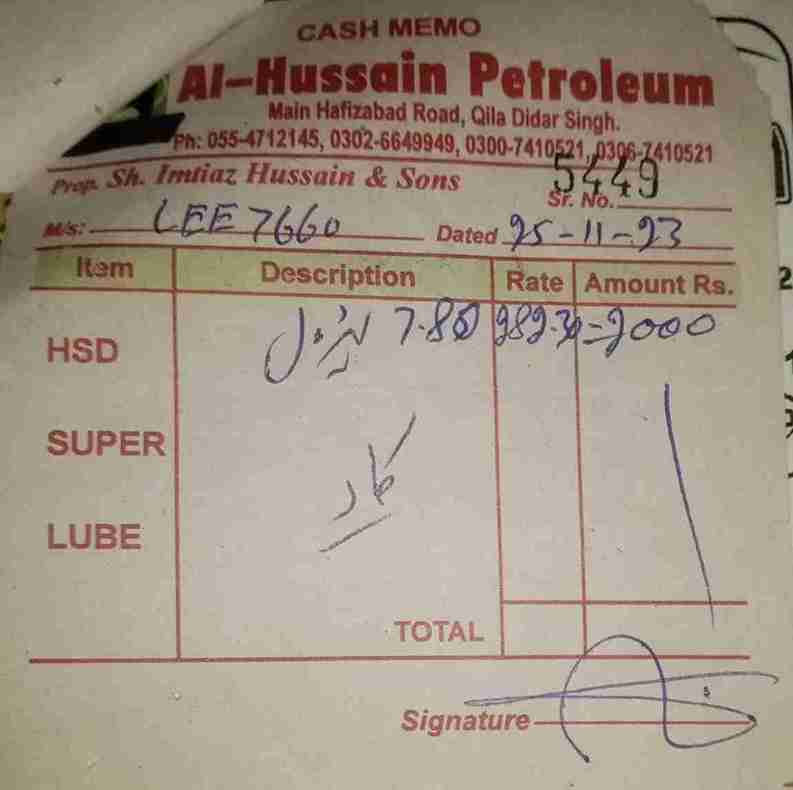 CASH MEMO
Al-Hussain Petroleum
Main Hafizabad Road, Qila Didar Singh.
Ph: 055-4712145, 0302-6649949, 0300-7410521, 0306-7410521
Prop. Sh. Imtiaz Hussain & Sons
5449
Sr. No.
M/s: LEE 7660 Dated 25-11-23
Item Description Rate Amount Rs.
HSD 7.80 2000
SUPER کار
LUBE
TOTAL
Signature